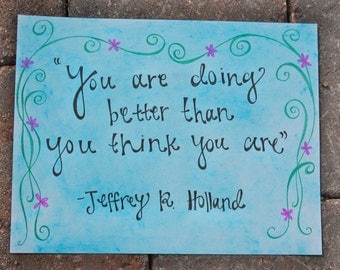 "You are doing
better than
you think you are"
-Jeffrey R. Holland